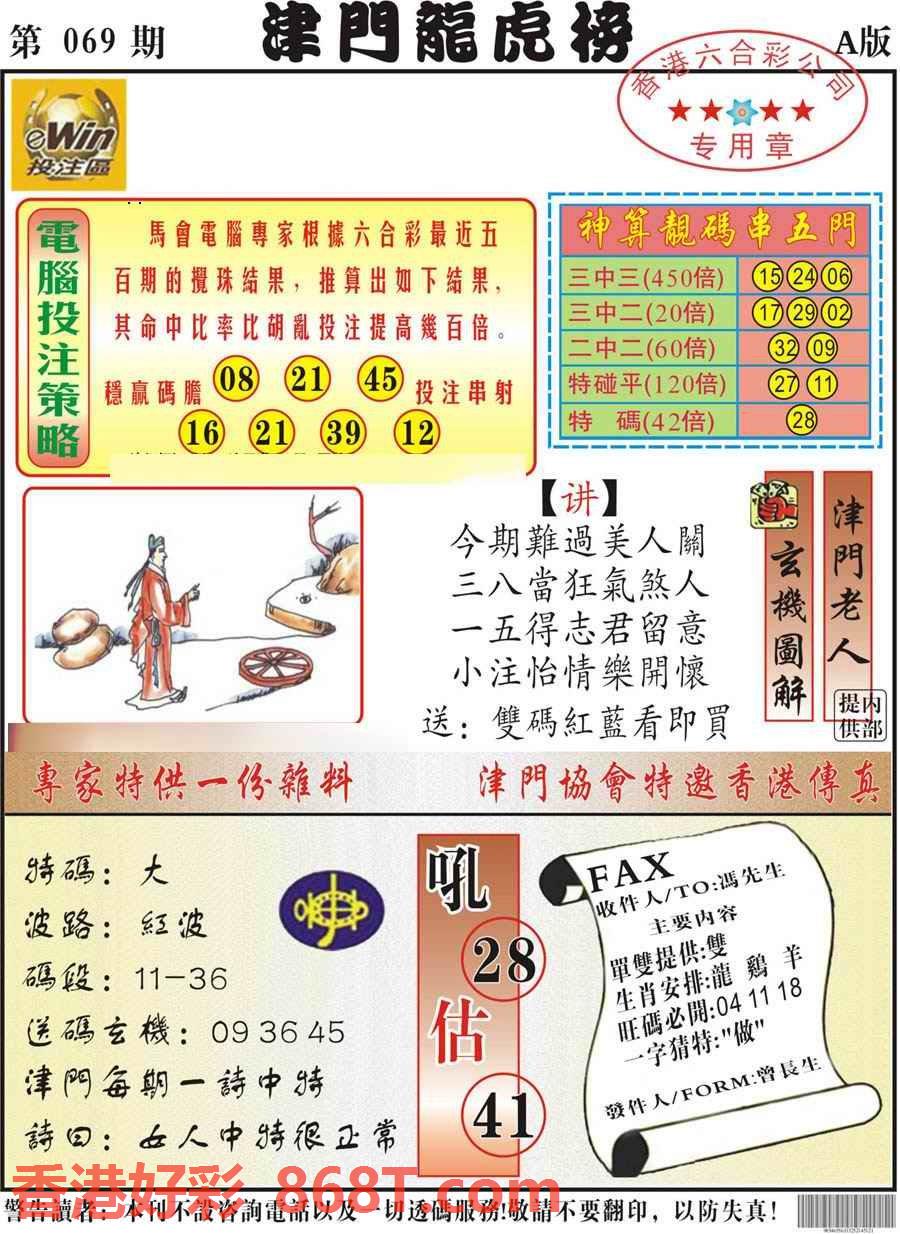 第 069 期
津門龍虎榜
A版
香港六合彩公司
专用章
eWin
投注區
電腦投注策略
馬會電腦專家根據六合彩最近五
百期的攪珠結果，推算出如下結果，
其命中比率比胡亂投注提高幾百倍。
穩贏碼膽 08 21 45 投注串射
16 21 39 12
神算靚碼串五門
三中三(450倍) 15 24 06
三中二(20倍) 17 29 02
二中二(60倍) 32 09
特碰平(120倍) 27 11
特 碼(42倍) 28
【讲】
今期難過美人關
三八當狂氣煞人
一五得志君留意
小注怡情樂開懷
送：雙碼紅藍看即買
玄機圖解
津門老人
内部提供
專家特供一份雜料
津門協會特邀香港傳真
特碼：大
波路：紅波
碼段：11-36
送碼玄機：09 36 45
津門每期一詩中特
詩曰：女人中特很正常
吼
28
估
41
FAX
收件人/TO:馮先生
主要内容
單雙提供:雙
生肖安排:龍 鷄 羊
旺碼必開:04 11 18
一字猜特:"做"
發件人/FORM:曾長生
香港好彩 868T.com
警告讀者：本刊不設咨詢電話以及一切透碼服務!敬請不要翻印，以防失真!